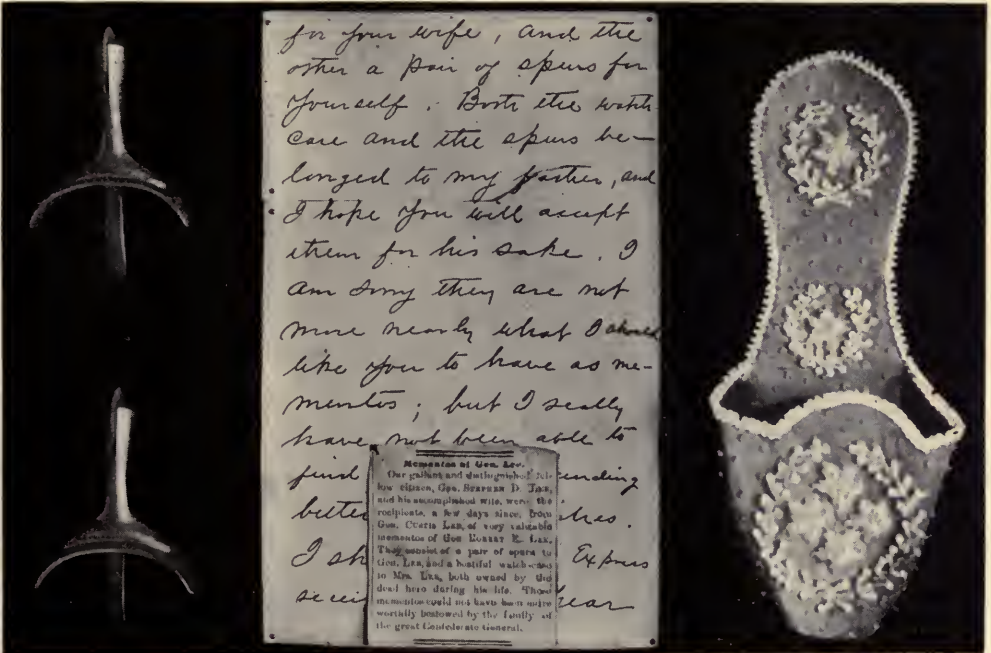 for your wife, and the
other a pair of spurs for
yourself. Both the watch
case and the spurs be-
longed to my father, and
I hope you will accept
them for his sake. I
am sorry they are not
more nearly what I should
like you to have as me-
mentos; but I really
have not been able to
find
better
I sh Expres
Mementos of Gen. Lee.
Our gallant and distinguished fel-
low citizen, Gen. STEPHEN D. LEE,
and his accomplished wife, were the
recipients, a few days since, from
Gen. CUSTIS LEE, of very valuable
mementos of Gen ROBERT E. LEE.
They consist of a pair of spurs to
Gen. LEE, and a beautiful watch-case
to Mrs. LEE, both owned by the
dead hero during his life. These
mementos could not have been more
worthily bestowed by the family of
the great Confederate General.